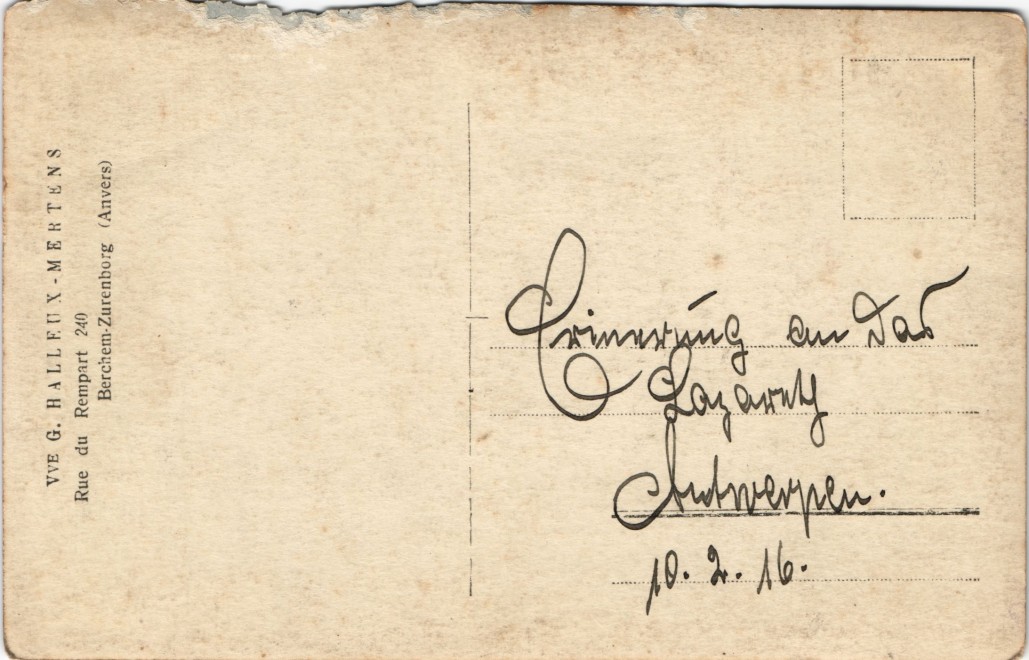 VVE G. HALLEUX-MERTENS
Rue du Rempart 240
Berchem-Zurenborg (Anvers)
Erinerung an das
Lazareth
Antwerpen.
10. 2. 16.